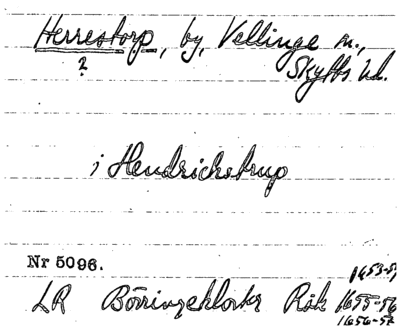 Herrestorp, by, Vellinge sn.,
?
Skytts hd.
i Hendrichstrup
Nr 5096.
1653-54
LR Börringekloster Räk 1655-56
1656-57